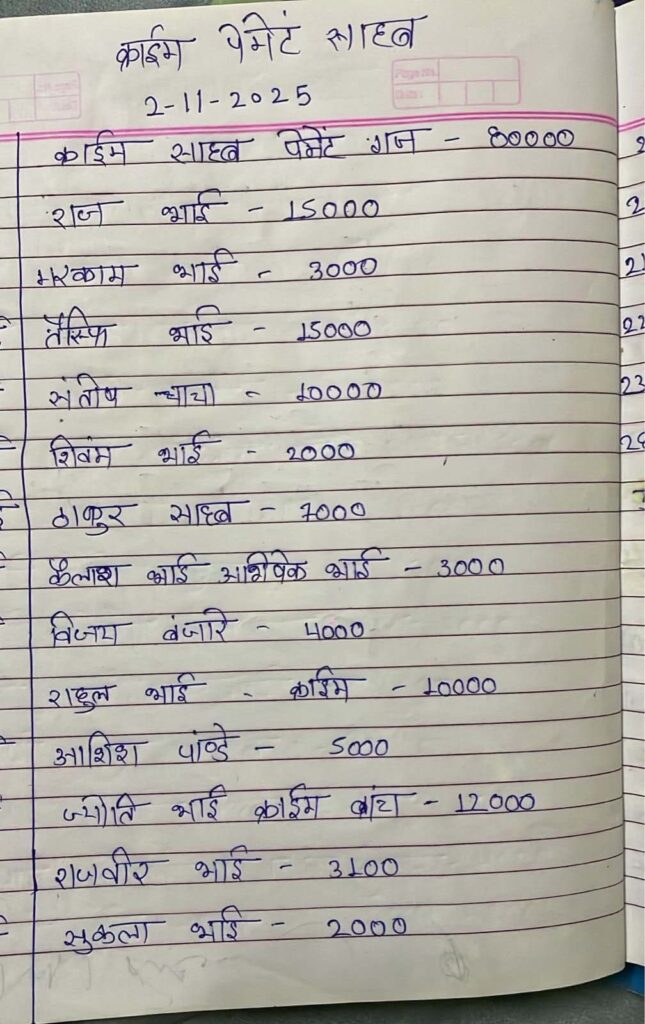 क्राईम पेमेटं साहब
2-11-2025
क्राईम साहब पेमेंट गज - 80000
राज भाई - 15000
मरकाम भाई - 3000
तौस्फि भाई - 15000
संतोष चाचा - 10000
शिवंम भाई - 2000
ठाकुर साहब - 7000
कैलाश भाई अभिषेक भाई - 3000
विजय बंजारे - 4000
राहुल भाई - क्राईम - 10000
आशिश पांण्डे - 5000
ज्योति भाई क्राईम ब्रांच - 12000
राजवीर भाई - 3100
सुकला भाई - 2000